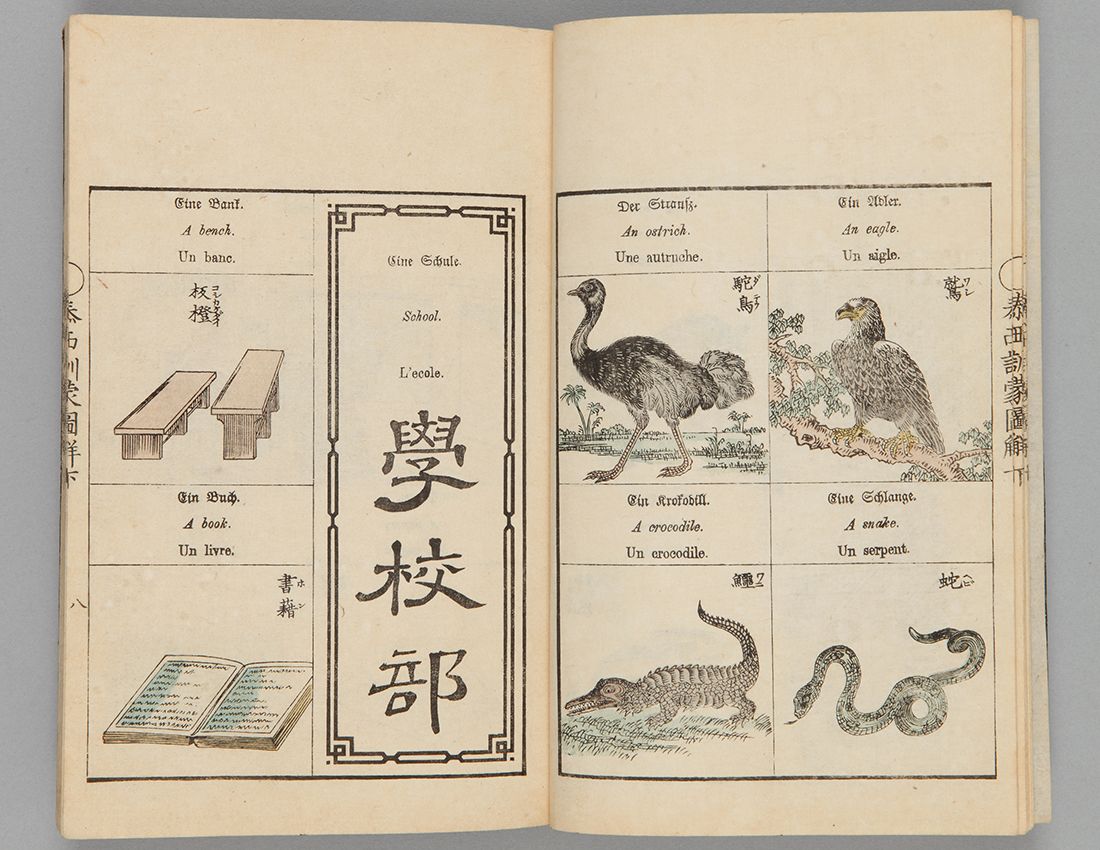 泰西訓蒙圖解 下
Ein Adler.
An eagle.
Un aigle.
鷲
ワシ
Der Strauß.
An ostrich.
Une autruche.
駝鳥
Eine Schlange.
A snake.
Un serpent.
蛇
ヘビ
Ein Krokodill.
A crocodile.
Un crocodile.
鱷
ワニ
Eine Schule.
School.
L'ecole.
學校部
Eine Bank.
A bench.
Un banc.
板橙
コシカケダイ
Ein Buch.
A book.
Un livre.
書藉
ホン
泰西訓蒙圖解下
八